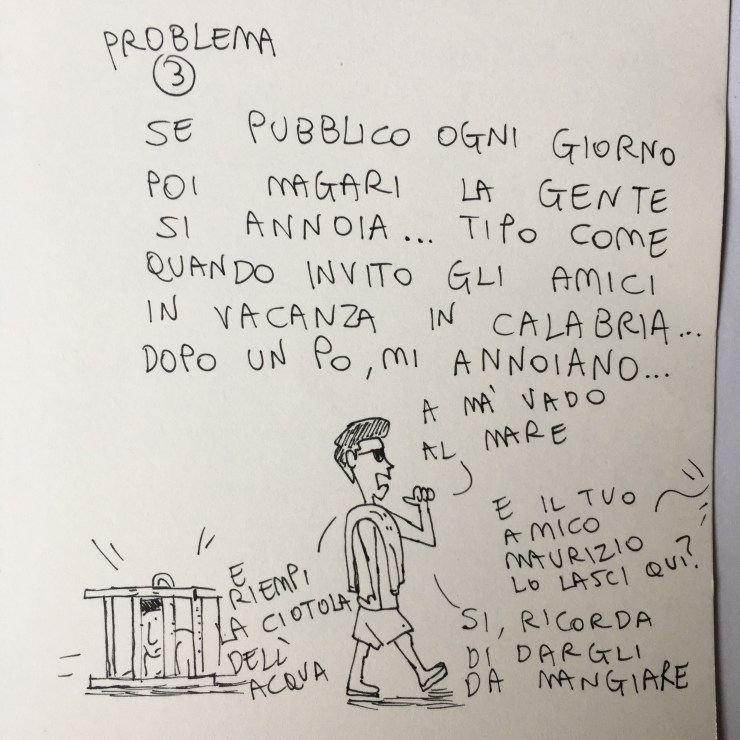 PROBLEMA
3
SE PUBBLICO OGNI GIORNO
POI MAGARI LA GENTE
SI ANNOIA... TIPO COME
QUANDO INVITO GLI AMICI
IN VACANZA IN CALABRIA...
DOPO UN PO, MI ANNOIANO...
A MA' VADO
AL MARE
E IL TUO
AMICO
MAURIZIO
LO LASCI QUI?
SI, RICORDA
DI DARGLI
DA MANGIARE
E
RIEMPI
LA CIOTOLA
DELL'
ACQUA